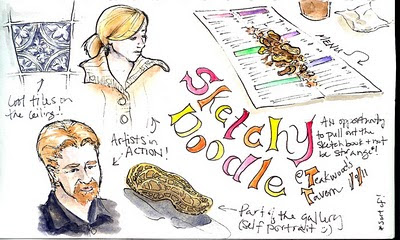 Menu
Cool tiles on
the ceiling!!
Artists in
ACTION!
Sketchy
Doodle
@ Teakwoods
Tavern 1/9/11
An opportunity
to pull out the
sketch book & not
be strange!!
Part of
the gallery
(self portrait :)